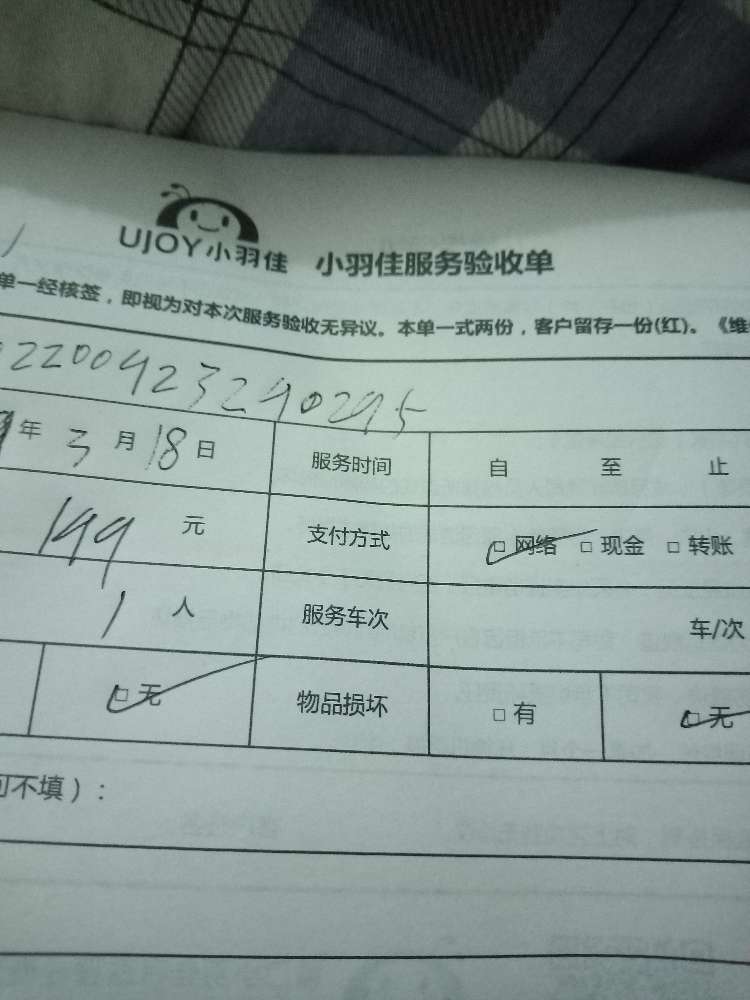 UJOY小羽佳 小羽佳服务验收单
单一经核签，即视为对本次服务验收无异议。本单一式两份，客户留存一份(红)。《维
2200423290295
年 3 月 18 日 服务时间 自 至 止
199 元 支付方式 □ 网络 □ 现金 □ 转账
1 人 服务车次 车/次
□ 无 物品损坏 □ 有 □ 无
可不填）：